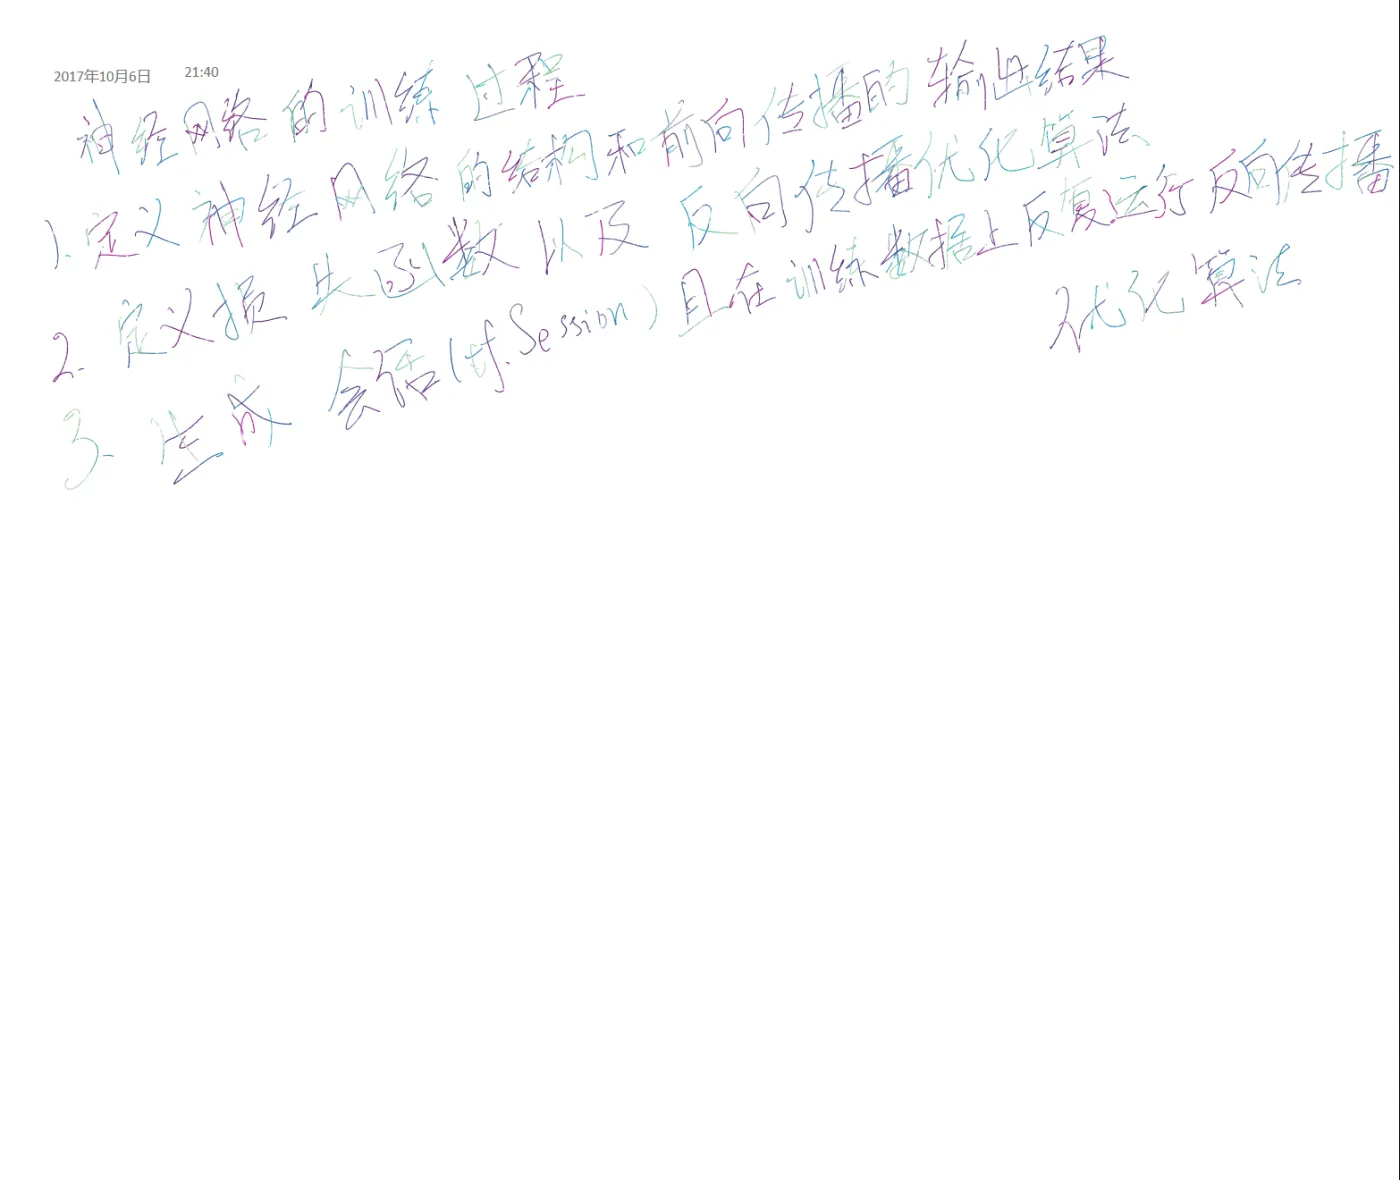 2017年10月6日 21:40
神经网络的训练过程
1.定义神经网络的结构和前向传播的输出结果
2.定义损失函数以及反向传播优化算法
3.生成会话(tf.Session)且在训练数据上反复运行反向传播
优化算法